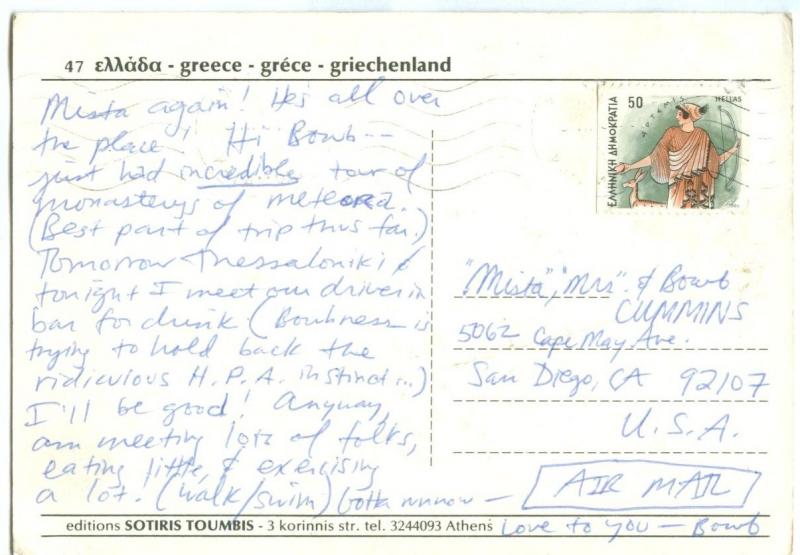 47 ελλάδα - greece - gréce - griechenland
Mista again! He's all over
the place! Hi Bowb --
just had incredible tour of
monasterys of meteora.
(Best part of trip thus far.)
Tomorrow Thessaloniki &
tonight I meet our driver in
bar for drink (Bowbness is
trying to hold back the
ridiculous H.P.A. instinct...)
I'll be good! Anyway,
am meeting lots of folks,
eating little, & exercising
a lot. (walk/swim) Gotta run now -
Love to you - Bowb
50
HELLAS
ΑΡΤΕΜΙΣ
ΕΛΛΗΝΙΚΗ ΔΗΜΟΚΡΑΤΙΑ
"Mista", "Mrs". & Bowb
CUMMINS
5062 Cape May Ave.
San Diego, CA 92107
U.S.A.
AIR MAIL
editions SOTIRIS TOUMBIS - 3 korinnis str. tel. 3244093 Athens